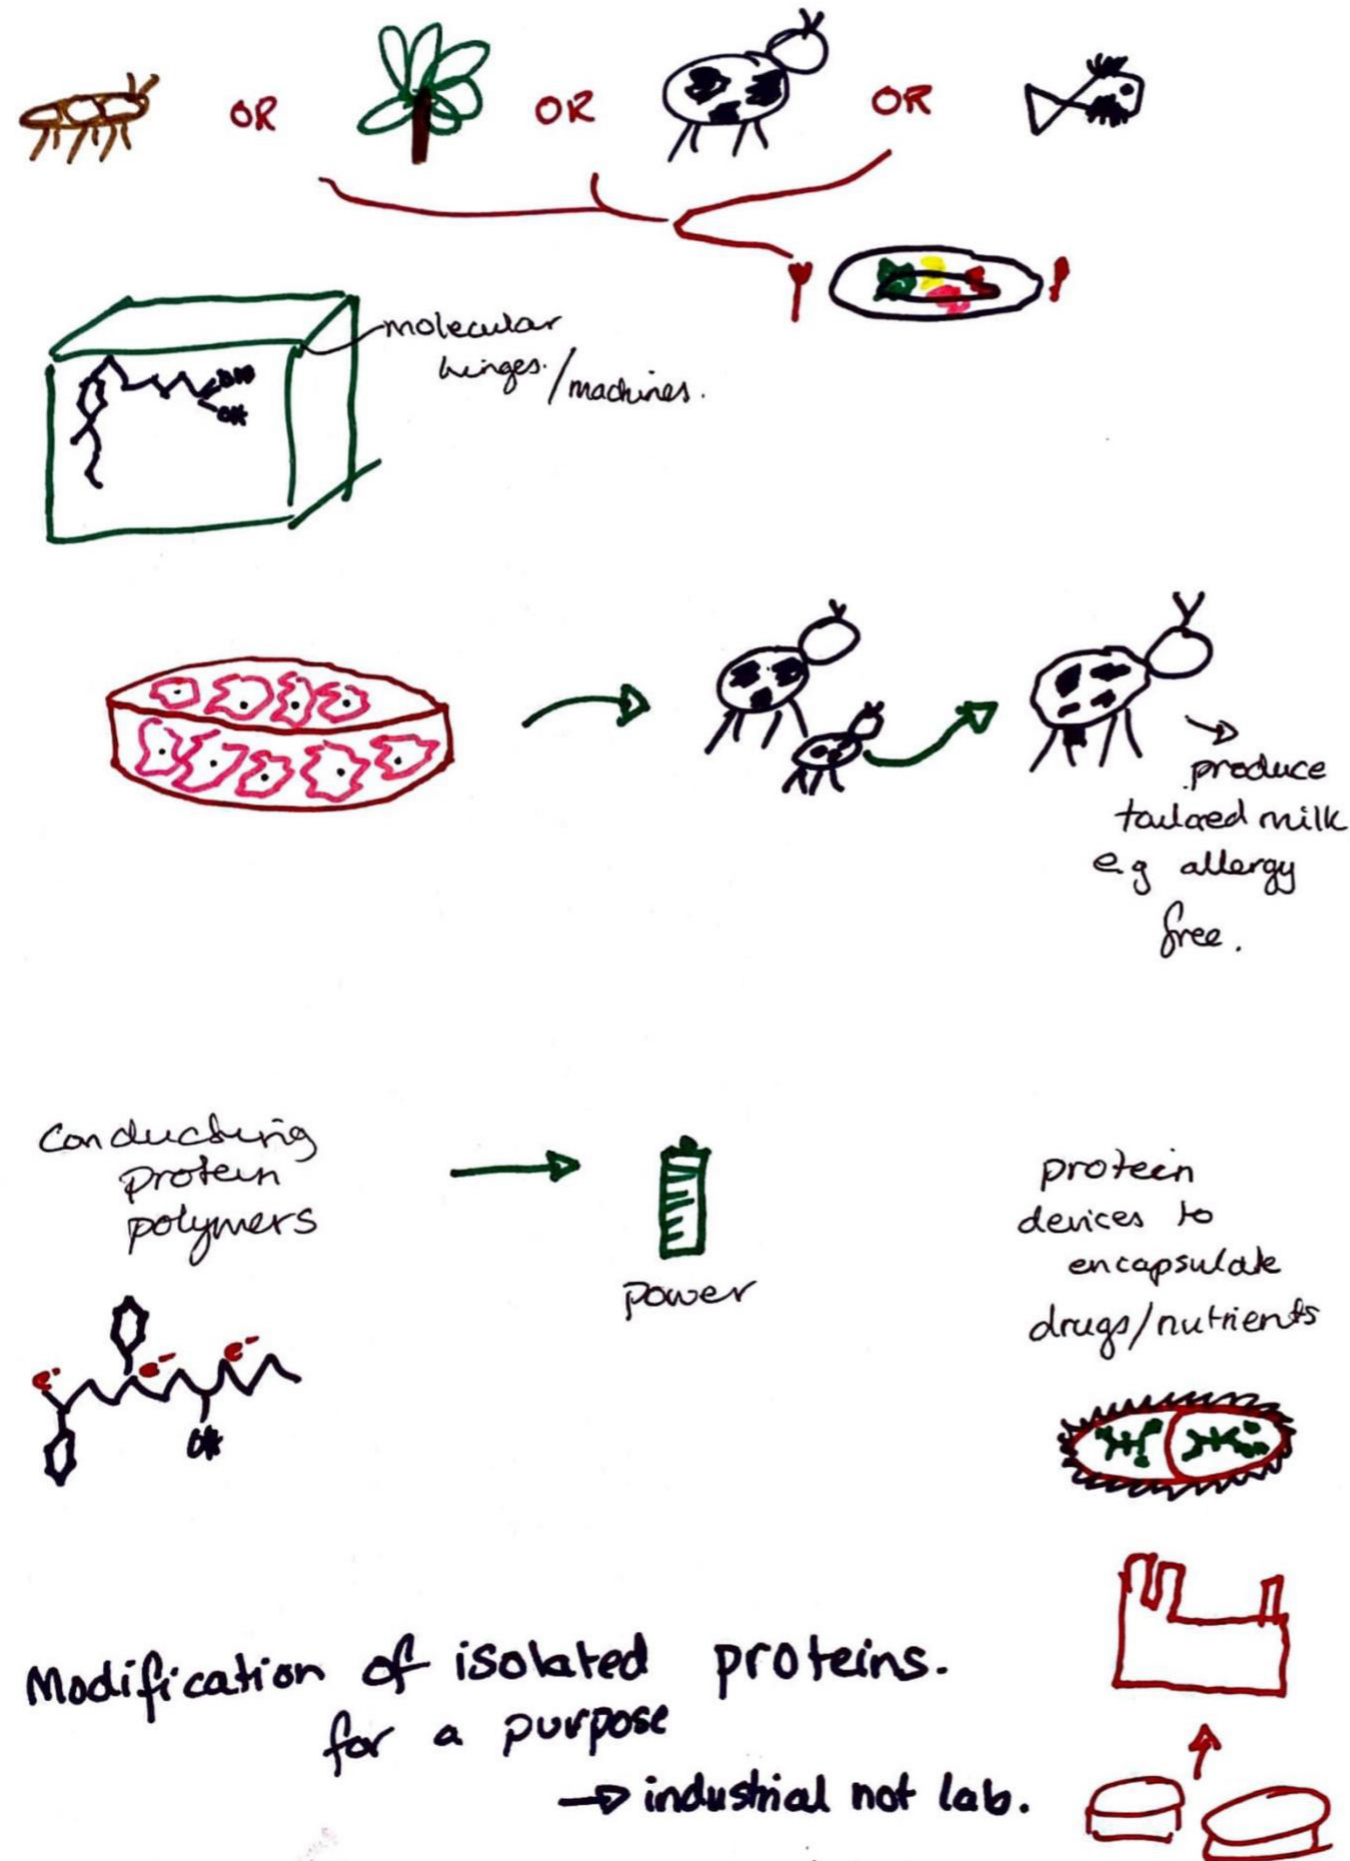 OR OR OR
molecular
hinges./machines.
OH
OH
produce
tailored milk
e.g allergy
free.
Conducting
protein
polymers
power
protein
devices to
encapsulate
drugs/nutrients
e- e- e-
OH
Modification of isolated proteins.
for a purpose
→ industrial not lab.